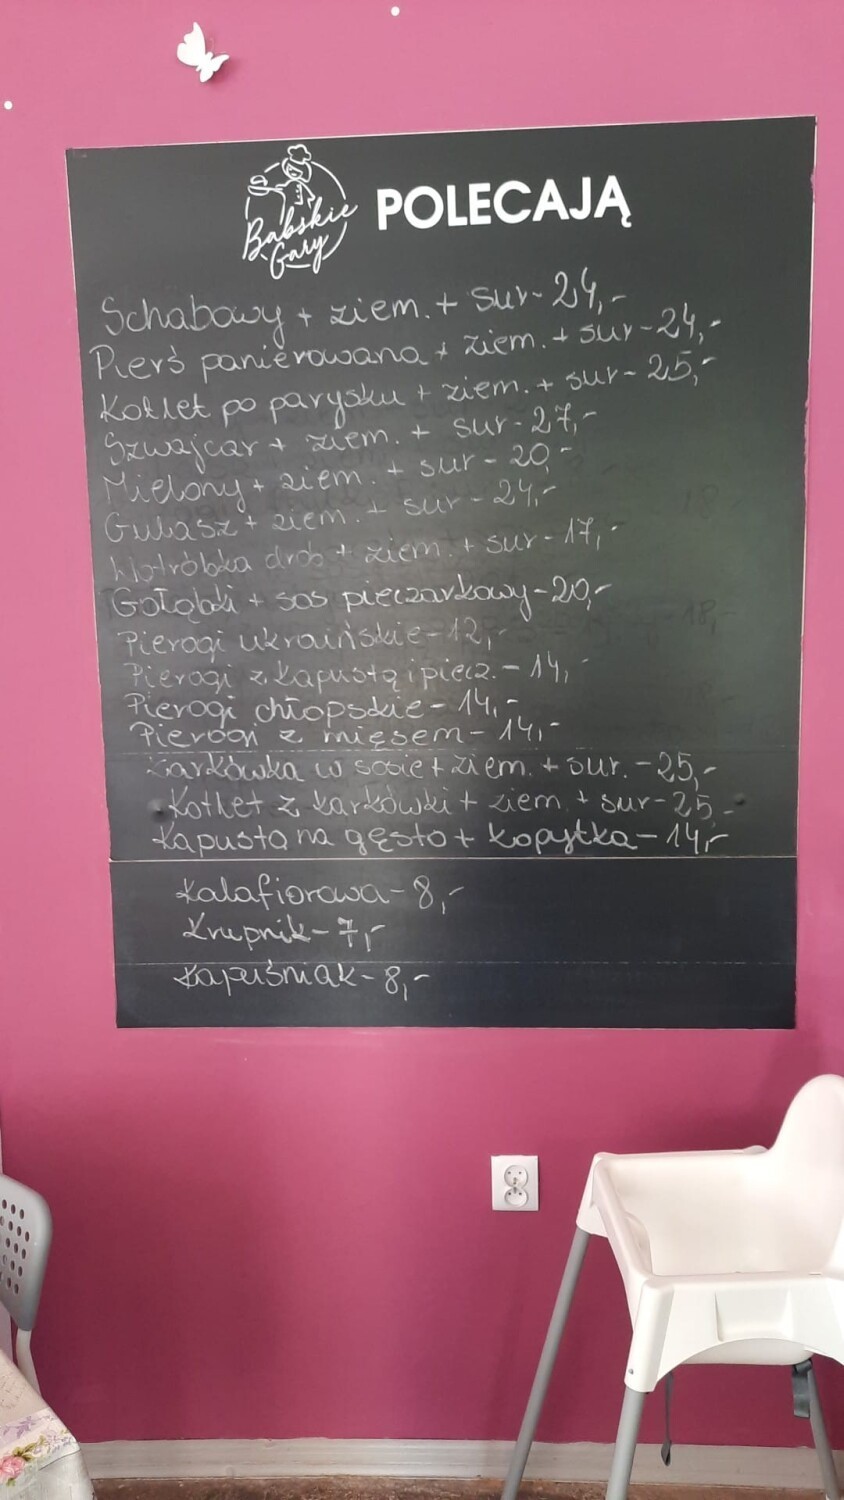 Babskie
Gary
POLECAJĄ
Schabowy + ziem. + sur - 24,-
Pierś panierowana + ziem. + sur - 24,-
Kotlet po parysku + ziem. + sur - 25,-
Szwajcar + ziem. + sur - 27,-
Mielony + ziem. + sur - 20,-
Gulasz + ziem. + sur - 24,-
Wątróbka drob + ziem. + sur - 17,-
Gołąbki + sos pieczarkowy - 20,-
Pierogi ukraińskie - 12,-
Pierogi z kapustą i piecz. - 14,-
Pierogi chłopskie - 14,-
Pierogi z mięsem - 14,-
Karkówka w sosie + ziem. + sur. - 25,-
Kotlet z karkówki + ziem + sur - 25,-
Kapusta na gęsto + kopytka - 14,-
Kalafiorowa - 8,-
Krupnik - 7,-
Kapuśniak - 8,-